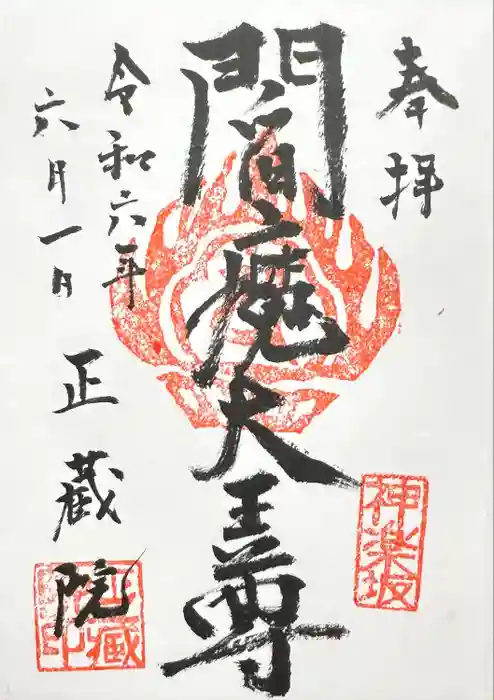 奉拝
神楽坂
閻魔大王尊
令和六年
六月一日
正蔵院
正蔵院印